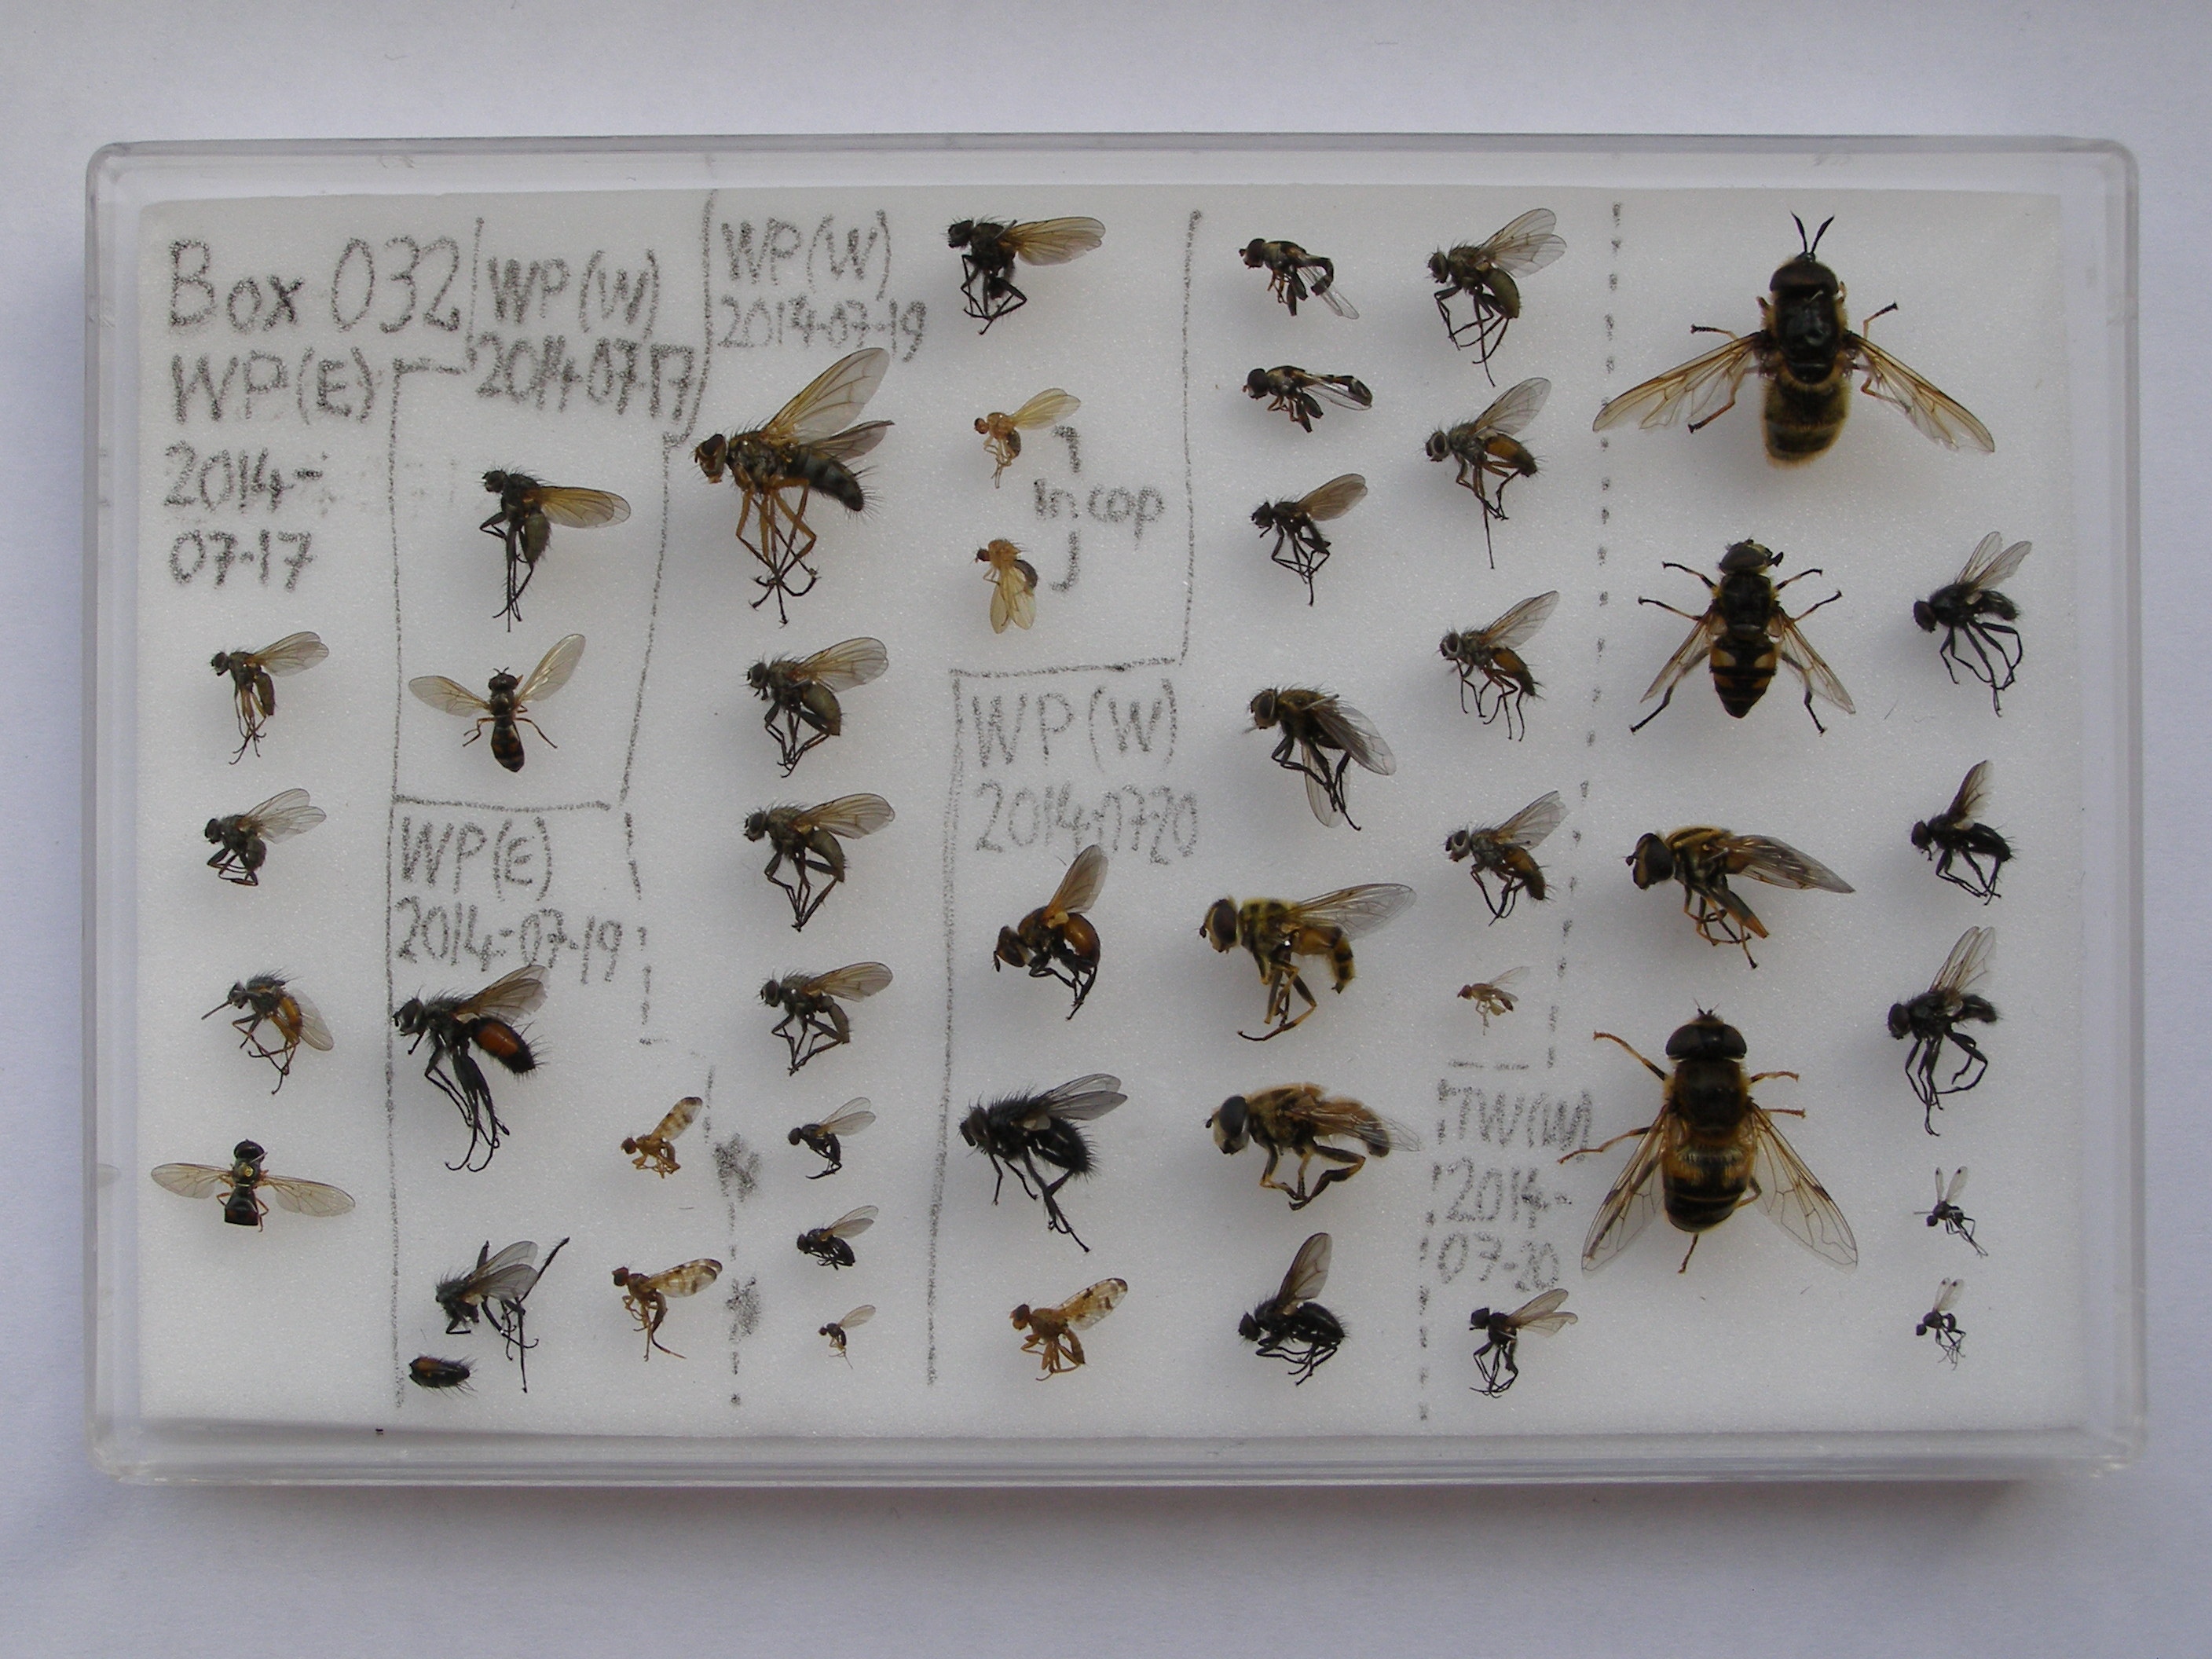 Box 032
WP(E)
2014-
07-17
WP(W)
2014-07-17
WP(E)
2014-07-19
WP(W)
2014-07-19
In cop
WP(W)
2014-07-20
TW(W)
2014-
07-20